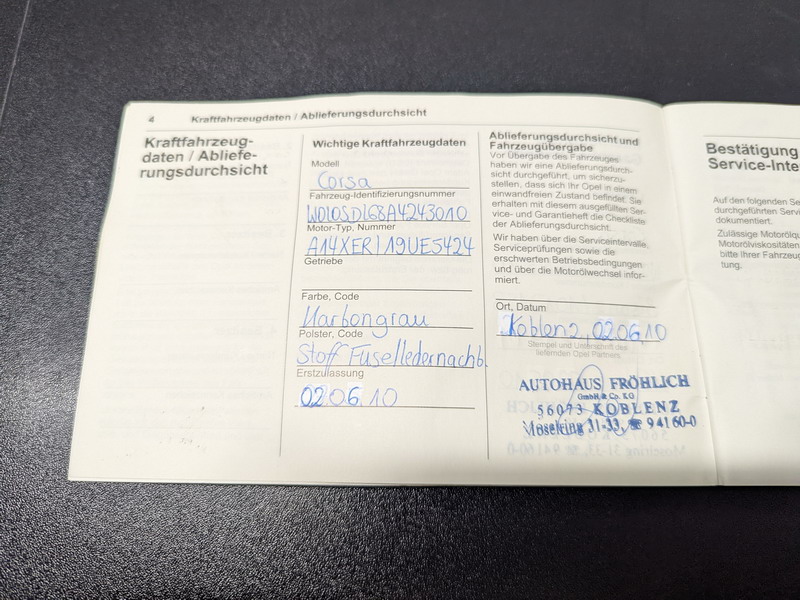 4 Kraftfahrzeugdaten / Ablieferungsdurchsicht
Kraftfahrzeug-
daten / Abliefe-
rungsdurchsicht
Wichtige Kraftfahrzeugdaten
Modell
Corsa
Fahrzeug-Identifizierungsnummer
W0L0SDL68A4243010
Motor-Typ, Nummer
A14XER | 19UE5424
Getriebe
Farbe, Code
Karbongrau
Polster, Code
Stoff
Erstzulassung
02.06.10
Ablieferungsdurchsicht und
Fahrzeugübergabe
Vor Übergabe des Fahrzeuges
haben wir eine Ablieferungsdurch-
sicht durchgeführt, um sicherzu-
stellen, dass sich Ihr Opel in einem
einwandfreien Zustand befindet. Sie
erhalten mit diesem ausgefüllten Ser-
vice- und Garantieheft die Checkliste
der Ablieferungsdurchsicht.
Wir haben über die Serviceintervalle,
Serviceprüfungen sowie die
erschwerten Betriebsbedingungen
und über die Motorölwechsel infor-
miert.
Ort, Datum
Koblenz, 02.06.10
Stempel und Unterschrift des
liefernden Opel Partners
AUTOHAUS FRÖHLICH
GmbH & Co. KG
56073 KOBLENZ
Moselring 31-33, ☎ 94160-0
Bestätigung
Service-Inte
Auf den folgenden Se
durchgeführten Servic
dokumentiert.
Zulässige Motorölqu
Motorölviskositäten
bitte Ihrer Fahrzeug
tung.